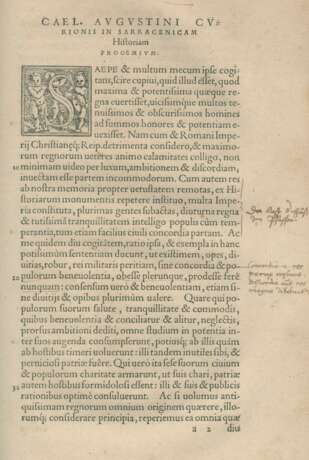 CAEL. AVGVSTINI CV⸗
RIONIS IN SARRACENICAM
Historiam
PROOEMIVM.
SAEPE & multum mecum ipse cogi⸗
tans, scire cupiui, quid illud esset, quod
maxima & potentissima quæque regna
euertisset, uicissimq́ue multos te⸗
nuissimos & obscurissimos homines
ad summos honores & potentiam e⸗
uexisset. Nam cum & Romani Impe⸗
rij Christianæq́; Reip. detrimenta considero, & maximo⸗
rum regnorum ueteres animo calamitates colligo, non
minimam uideo per luxum, ambitionem & discordiam,
inuectam esse partem incommodorum. Cum autem res
ab nostra memoria propter uetustatem remotas, ex Hi⸗
storiarum monumentis repetere instituo, multa Impe⸗
ria constituta, plurimas gentes subactas, diuturna regna
& tutissimã tranquillitatem intelligo populis cùm tem⸗
perantia, tum etiam facilius ciuili concordia partam. Ac
me quidem diu cogitãtem, ratio ipsa, & exempla in hanc
potissimùm sententiam ducunt, ut existimem, opes, di⸗
uitias, robur, rei militaris peritiam, sine concordia & po⸗
pulorum beneuolentia, obesse plerunque, prodesse ferè
nunquam: consensum uerò & beneuolentiam, etiam si⸗
ne diuitijs & opibus plurimùm ualere. Quare qui po⸗
pulorum suorum salute, tranquillitate & commodis,
quibus beneuolentia & conciliatur & alitur, neglectis,
prorsus ambitioni dediti, omne studium in potentia in⸗
ter suos augenda consumpserunt, potiusq́; ab illis quàm
ab hostibus timeri uoluerunt: illi tandem inutiles sibi, &
perniciosi patriæ fuerunt. Qui uerò ita sese suorum ciuium
& populorum charitate armarunt, ut suis chari, patriæ
autem hostibus formidolosi essent: illi & suis & publicis
rationibus optimè consuluerunt. Ac si uolumus anti⸗
quissimam regnorum omnium originem quærere, illo⸗
rumq́; considerare principia, reperiemus ea omnia quæ
a 2 diu